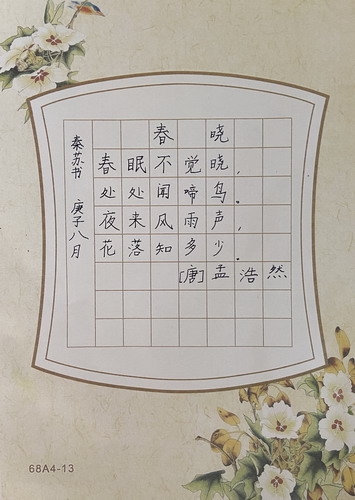 春晓
春眠不觉晓，
处处闻啼鸟。
夜来风雨声，
花落知多少。
[唐]孟浩然
秦苏书 庚子八月
68A4-13